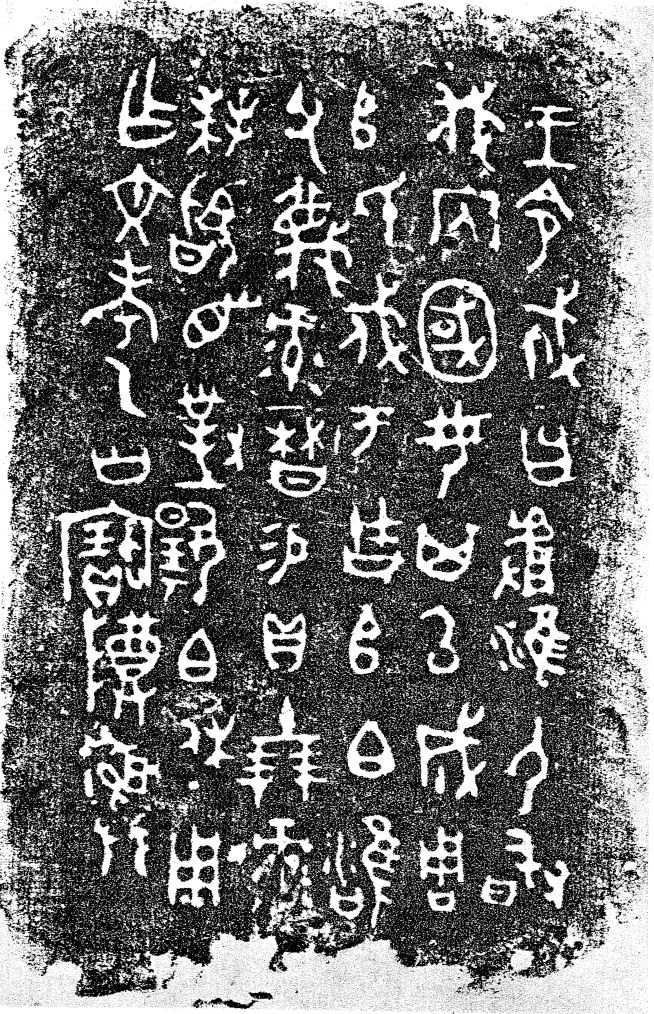 王令𢦚曰𠭯淮尸敢
伐内國女其㠯成周
𠂤氏戍于古𠂤白雝
父蔑彔曆易貝十朋彔
拜𩒨首對揚白休用
乍文考乙公寶𬯚彝